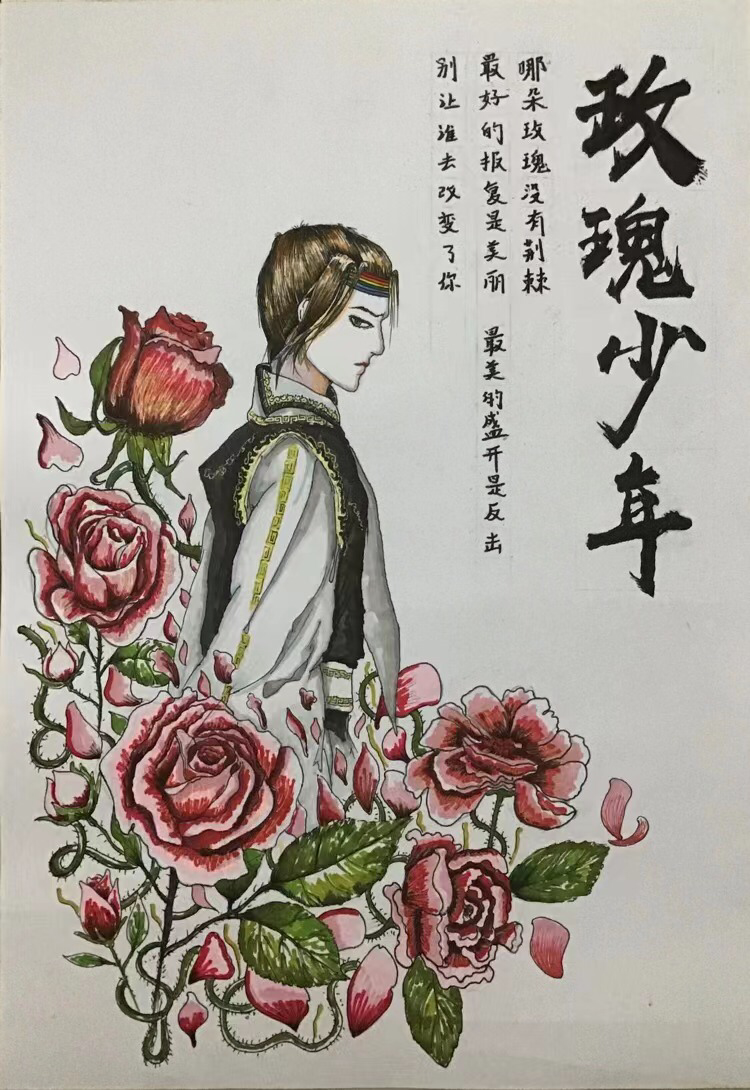 玫瑰少年
哪朵玫瑰没有荆棘
最好的报复是美丽 最美的盛开是反击
别让谁去改变了你